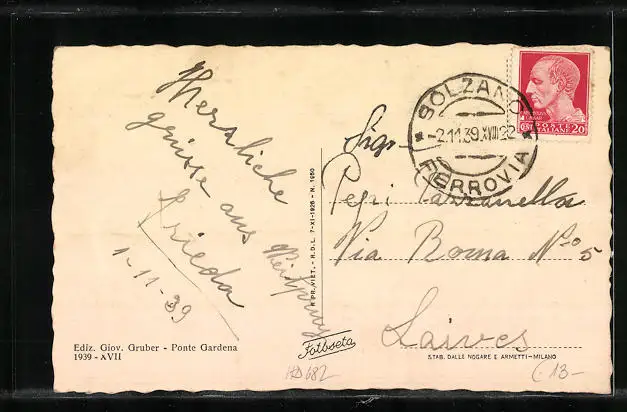 Herzliche
grüsse aus
Frieda
1-11-39
Ediz. Giov. Gruber - Ponte Gardena
1939 - XVII
RIPR. VIET. - R.D.L. 7-XI-1925 - N. 1950
Fotoseta
HD682
BOLZANO
-2.11.39.XVIII 22
FERROVIA
POSTE
ITALIANE
CENT. 20
Sigr.
Pepi
Via Roma No 5
Laives
STAB. DALLE NOGARE E ARMETTI - MILANO
C 13-